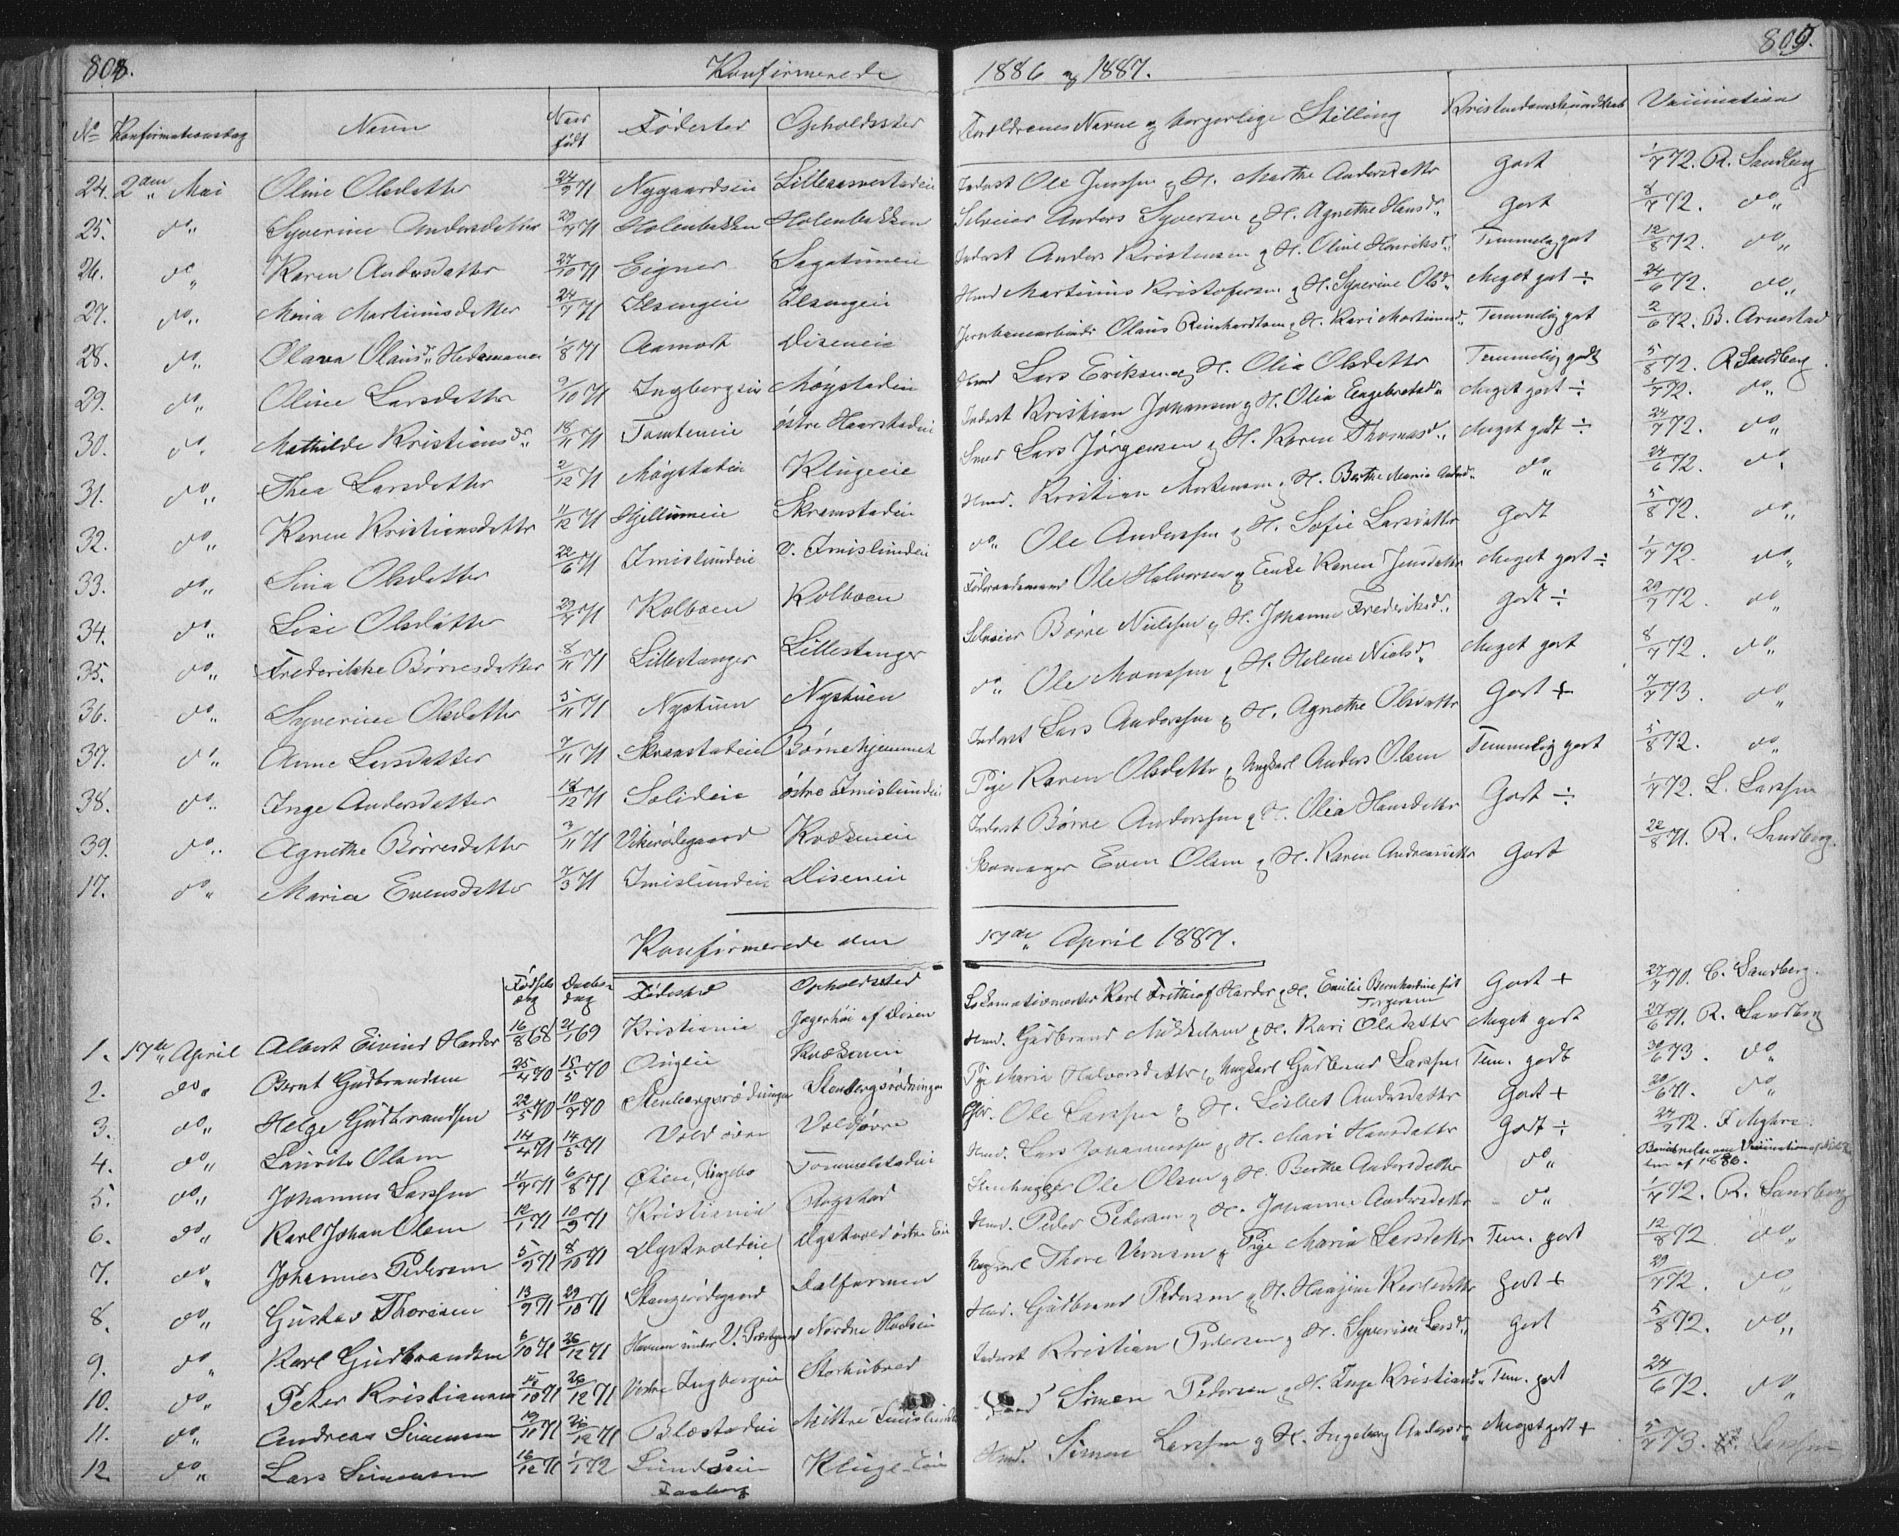 808. Konfirmerede 1886 og 1887. 809.
No Konfirmationsdag Navn Naar født Fødested Opholdssted Forældrenes Navne og borgerlige Stilling Kristendomskundskab Vaccination
24. 2den Mai Oline Olsdatter 24/2 71 Nygaardseie Inderst Ole Jensen og H. Marthe Andersdatter godt 1/7 72. R. Sandberg
25. do Syverine Andersdatter 29/7 71 Holenbakken Holenbakken Selveier Anders Syversen og H. Agnethe Hansd. godt 8/7 72. do
26. do Karen Andersdatter 27/10 71 Eigner Sagatuneie Inderst Anders Kristensen og H. Oline Henriksd. Temmelig godt 12/8 72. do
27. do Mina Martiniusdatter 24/7 71 Ilsengeie Ilsengeie Hmd Martinius Kristofersen og H. Syverine Olsd. Meget godt ÷ 24/6 72. do
28. do Olava Olausd. Hedemanen 1/8 71 Aamodt Diseneie Jernbanearbeider Olaus Reinhardtsen og H. Kari Martinusd. Temmelig godt 2/6 72. B. Arnestad
29. do Oline Larsdatter 9/10 71 Ingbergeie Møystadeie Hmd Lars Eriksen og H. Olia Olsdatter Temmelig godt 5/8 72. R. Sandberg
30. do Mathilde Kristiansd. 18/11 71 Tomteneie østre Haarstadeie Inderst Kristian Johansen og H. Olia Engebretsd. Meget godt ÷ 1/7 72. do
31. do Thea Larsdatter 2/12 71 Møystadeie Klugeeie Smed Lars Jørgensen og H. Karen Thomasd. Meget godt ÷ 24/7 72. do
32. do Karen Kristiansdatter 11/12 71 Hjellumeie Skramstadeie Hmd. Kristian Mortensen og H. Berthe Maria do 24/6 72. do
33. do Sina Olsdatter 22/6 71 Imislundeie v. Imislundeie do Ole Anderssen og H. Sofie Larsdatter godt 5/8 72. do
34. do Lise Olsdatter 29/7 71 Kolboen Kolboen Føderaadsmand Ole Halvorsen og Enke Karen Jensdatter Meget godt ÷ 1/7 72. do
35. do Frederikke Børresdatter 8/11 71 Lillestanger Lillestanger Selveier Børre Nielssen og H. Johanne Frederiksd. godt ÷ 29/7 72. do
36. do Syverine Olsdatter 5/11 71 Nystuen Nystuen do Ole Monssen og H. Helene Nielsd. Meget godt 8/7 72. do
37. do Anne Larsdatter 7/11 71 Skramstadeie Børnehjemmet Inderst Lars Anderssen og H. Agnethe Olsdatter Godt + 7/7 73. do
38. do Inge Andersdatter 18/12 71 Solideie østre Imislundeie Pige Karen Olsdatter og Ungkarl Anders Olsen Temmelig godt 5/8 72. do
39. do Agnethe Børresdatter 3/11 71 Vikerødegaard Kvækeneie Inderst Børre Anderssen og H. Olia Hansdatter Godt ÷ 1/7 72. L. Larssen
17. do Maria Evensdatter 7/3 71 Imislundeie Diseneie Skomager Even Olsen og H. Karen Andreasdatter Godt 22/8 71. R. Sandberg.
Konfirmerede den 17de April 1887.
Fødselsdag Daabsdag Fødested Opholdssted
1. 17de April Albert Eivind Harder 16/8 68 21/1 69 Kristiania Jægerhøi af Disen Lokomotivmester Karl Frithjof Harder og H. Emilie Bernhardine født Torgersen Godt + 27/7 70. C. Sandberg.
2. do Bernt Gudbrandsen 25/4 70 15/5 70 Kvækeneie Hmd. Gudbrand Mikkelsen og H. Kari Olsdatter Meget godt 27/6 71. R. Sandberg
3. do Helge Gudbrandsen 22/5 70 10/7 70 Stenbergsrødningen Stenbergsrødningen Pige Maria Halvorsdatter og Ungkarl Gudbrand Larssen Tem. godt 30/6 73. do
4. do Laurits Olsen 14/4 71 14/5 71 Vold øvre Vold øvre Gbr. Ole Larssen og H. Lisbet Andersdatter Godt + 20/6 71. do
5. do Johannes Larssen 11/7 71 6/8 71 Øien, Ringebo Tommelstadeie Hmd. Lars Johannessen og H. Mari Hansdatter Godt ÷ 24/7 72. F. Myhre
6. do Karl Johan Olsen 12/1 71 10/9 71 Kristiania Rogstad Stenhugger Ole Olsen og H. Berthe Andersdatter do Bevidnelse om Vaccination af 1886.
7. do Johannes Pedersen 5/9 71 8/10 71 Dystvoldeie Dystvold østre Eie Hmd. Peder Pedersen og H. Johanne Andersdatter do 1/7 72. R. Sandberg
8. do Gustav Thoresen 13/9 71 29/10 71 Stangerødegaard Dalfarmen Ungkarl Thore Vernsen og Pige Maria Larsdatter Tem. godt 12/8 72. do
9. do Karl Gudbrandsen 6/10 71 26/12 71 Nordre Hoelseie Hmd. Gudbrand Pedersen og H. Haagine Karlsdatter Godt + 29/7 72. do
10. do Peter Kristiansen 15/10 71 26/12 71 Vestre Ingbergeie Storhubred Inderst Kristian Pedersen og H. Syverine Larsd. Godt 5/8 72. do
11. do Andreas Simensen 19/11 71 26/12 71 Blæstadeie Mittre Imislundeie Simen Pedersen og H. Inge Kristiansd. Tem. godt 24/6 72. do
12. do Lars Simensen 16/12 71 1/1 72 Lundseie Faaberg Kluge-Eie Hmd. Simen Larssen og H. Ingeborg Andersd. Meget godt + 5/7 73. Larssen